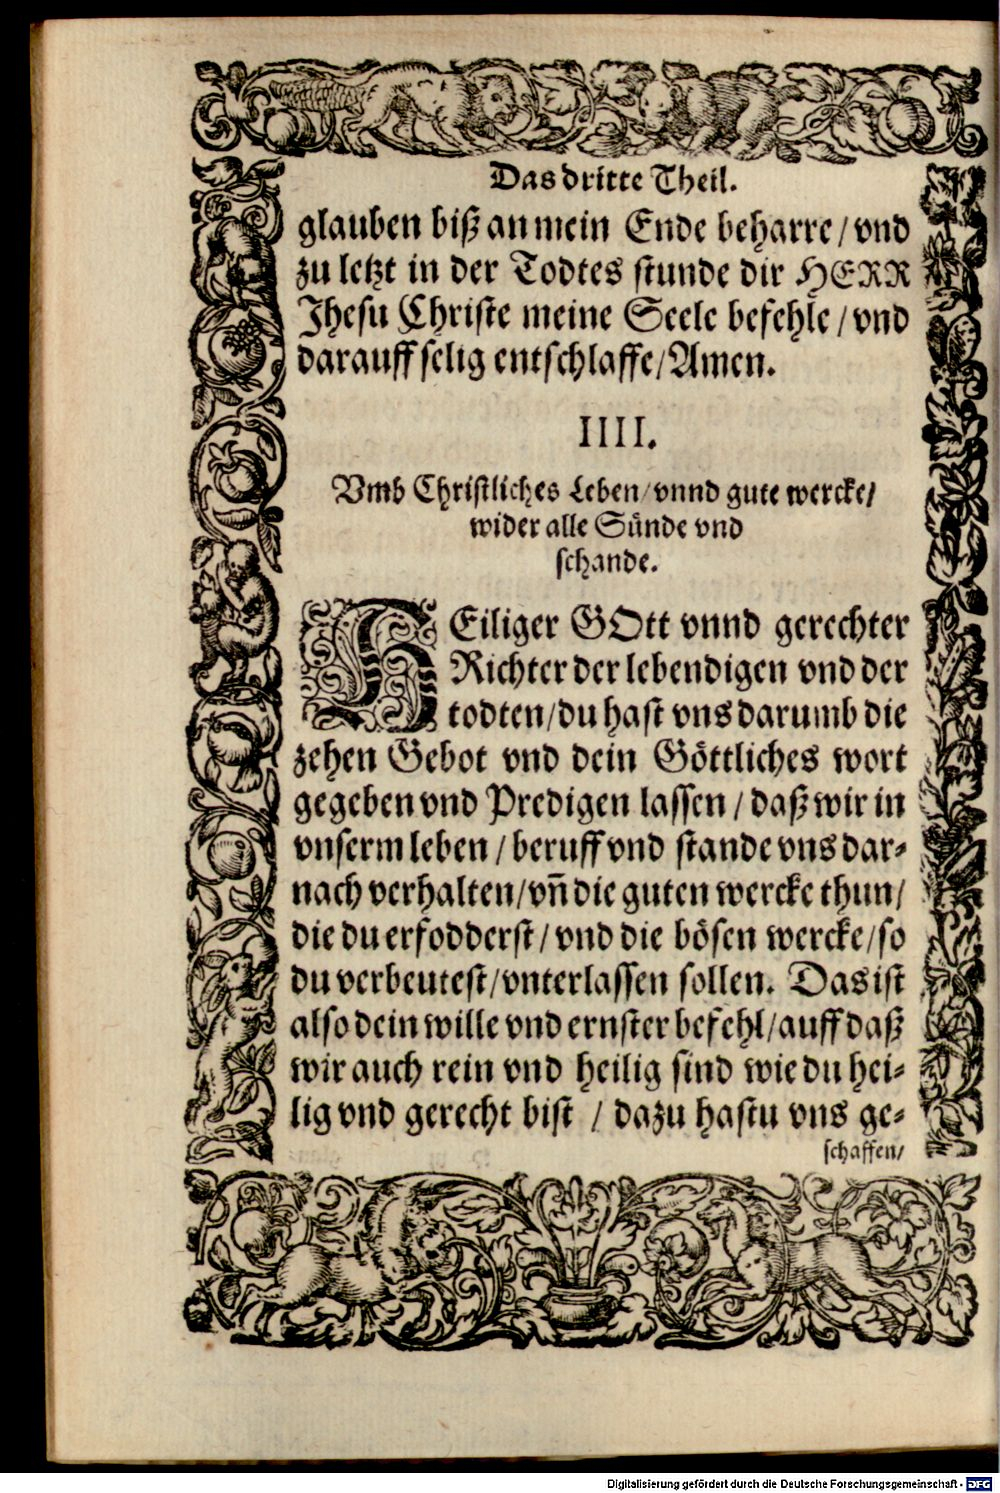 Das dritte Theil.
glauben biß an mein Ende beharre / vnd
zu letzt in der Todtes stunde dir HERR
Jhesu Christe meine Seele befehle / vnd
darauff selig entschlaffe / Amen.
IIII.
Vmb Christliches Leben / vnnd gute wercke /
wider alle Sünde vnd
schande.
HEiliger GOtt vnnd gerechter
Richter der lebendigen vnd der
todten / du hast vns darumb die
zehen Gebot vnd dein Göttliches wort
gegeben vnd Predigen lassen / daß wir in
vnserm leben / beruff vnd stande vns dar-
nach verhalten / vñ die guten wercke thun /
die du erfodderst / vnd die bösen wercke / so
du verbeutest / vnterlassen sollen. Das ist
also dein wille vnd ernster befehl / auff daß
wir auch rein vnd heilig sind wie du hei-
lig vnd gerecht bist / dazu hastu vns ge-
schaffen /
Digitalisierung gefördert durch die Deutsche Forschungsgemeinschaft - DFG